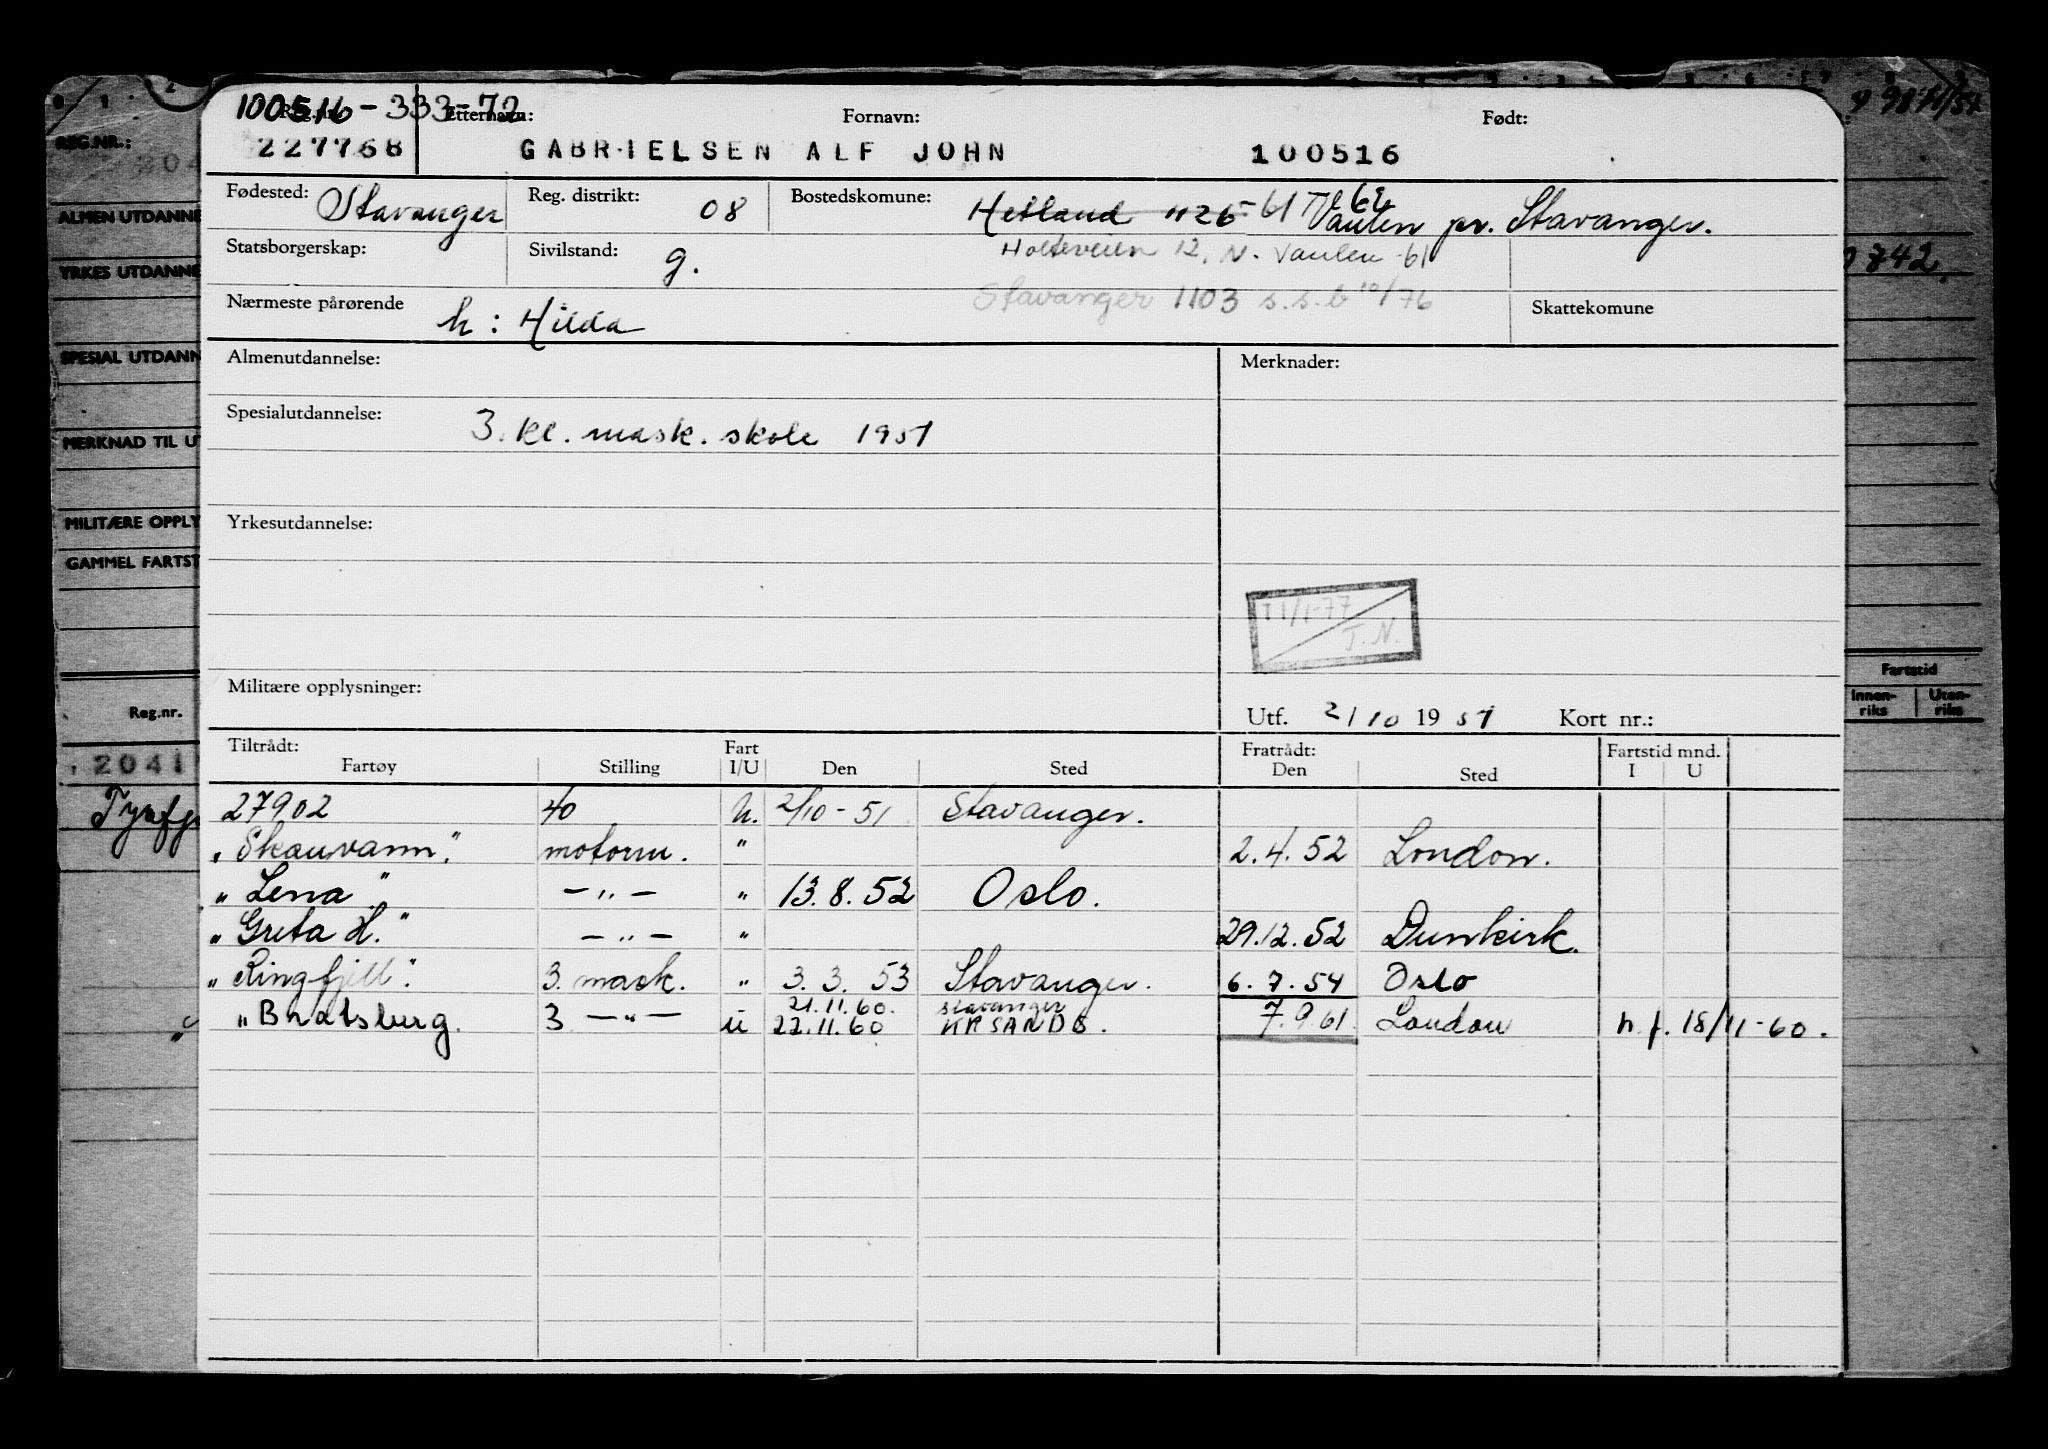 100516-333-72
Reg.nr.: Etternavn: Fornavn: Født:
227768 GABRIELSEN ALF JOHN 100516
Fødested: Stavanger Reg. distrikt: 08 Bostedskomune: Hetland 1126 61 Vaulen pr. Stavanger.
Statsborgerskap: Sivilstand: g. Holteveien 12, N. Vaulen -61
Stavanger 1103 s.s.b 10/76
Nærmeste pårørende h: Hilda Skattekomune
Almenutdannelse: Merknader:
Spesialutdannelse: 3. kl. mask. skole 1951
Yrkesutdannelse:
11/1-77
T.N.
Militære opplysninger:
Utf. 2/10 1951 Kort nr.:
Tiltrådt: Fart Fratrådt: Fartstid mnd.
Fartøy Stilling I/U Den Sted Den Sted I U
27902 40 U. 2/10-51 Stavanger.
"Skauvann". motorm. " 2.4.52 London.
"Lena" — " — " 13.8.52 Oslo.
"Greta H." — " — " 29.12.52 Dunkirk.
"Ringfjell". 3. mask. " 3.3.53 Stavanger. 6.7.54 Oslo
21.11.60. Stavanger
"Bratsburg. 3 — " — u 22.11.60 KRSANDS. 7.9.61 London h.f. 18/11-60.
REG.NR.:
204
ALMEN UTDANNE
YRKES UTDANNE
742
SPESIAL UTDANN
MERKNAD TIL U
MILITÆRE OPPLY
GAMMEL FARTST
Fartstid
Reg.nr. Innen-riks Uten-riks
2041